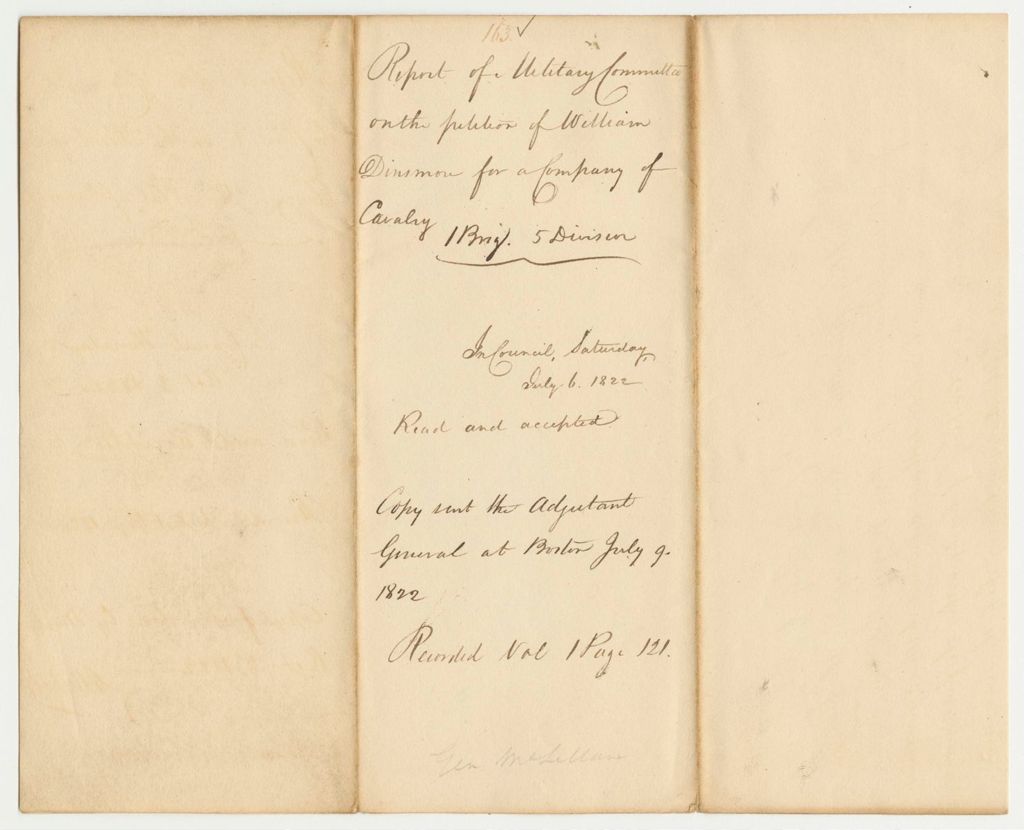 163 ✓
Report of Military Committee
on the petition of William
Dinsmore for a Company of
Cavalry 1 Brig. 5 Division
In Council, Saturday,
July 6. 1822
Read and accepted
Copy sent the Adjutant
General at Boston July 9.
1822
Recorded Vol 1 Page 121.
Gen McLellan